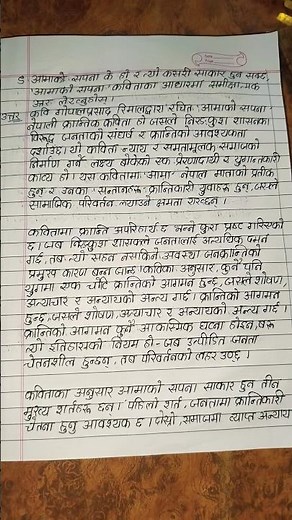 ङ आमाको सपना के हो र त्यो कसरी साकार हुन सक्छ,
'आमाको सपना' कविताका आधारमा समीक्षात्मक
उत्तर लेख्नुहोस् ।
उत्तर कवि गोपालप्रसाद रिमालद्वारा रचित 'आमाको सपना'
नेपाली क्रान्तिक कविता हो जसले निरङ्कुश शासनका
विरुद्ध जनताको संघर्ष र क्रान्तिको आवश्यकता
दर्शाउँछ । यो कविता न्याय र समतामूलक समाजको
निर्माण गर्ने लक्ष्य बोकेको एक प्रेरणादायी र युगान्तकारी
काव्य हो । यस कवितामा 'आमा' नेपाल माताको प्रतीक
हुन् र उनका सन्तानहरू क्रान्तिकारी युवाहरू हुन्, जसले
सामाजिक परिवर्तन ल्याउने क्षमता राख्छन् ।
कवितामा क्रान्ति अपरिहार्य छ भन्ने कुरा प्रष्ट गरिएको
छ । जब निरङ्कुश शासकले जनतालाई अत्यधिक दमन
गर्छ, तब त्यो सहन नसकिने अवस्था जनक्रान्तिको
प्रमुख कारण बन्न जान्छ । कविका अनुसार, कुनै पनि
युगमा एक चोटि क्रान्तिको आगमन हुन्छ, जसले शोषण,
अत्याचार र अन्यायको अन्त्य गर्छ । क्रान्तिको आगमन
हुन्छ, जसले शोषण, अत्याचार र अन्यायको अन्त्य गर्छ ।
क्रान्तिको आगमन कुनै आकस्मिक घटना होइन, बरू
त्यो इतिहासको नियम हो - जब उत्पीडित जनता
चेतनशील हुन्छन्, तब परिवर्तनको लहर उठ्छ ।
कविताका अनुसार आमाको सपना साकार हुन तीन
मुख्य शर्तहरू छन् । पहिलो शर्त, जनतामा क्रान्तिकारी
चेतना हुनु आवश्यक छ । दोस्रो, समाजमा व्याप्त अन्याय